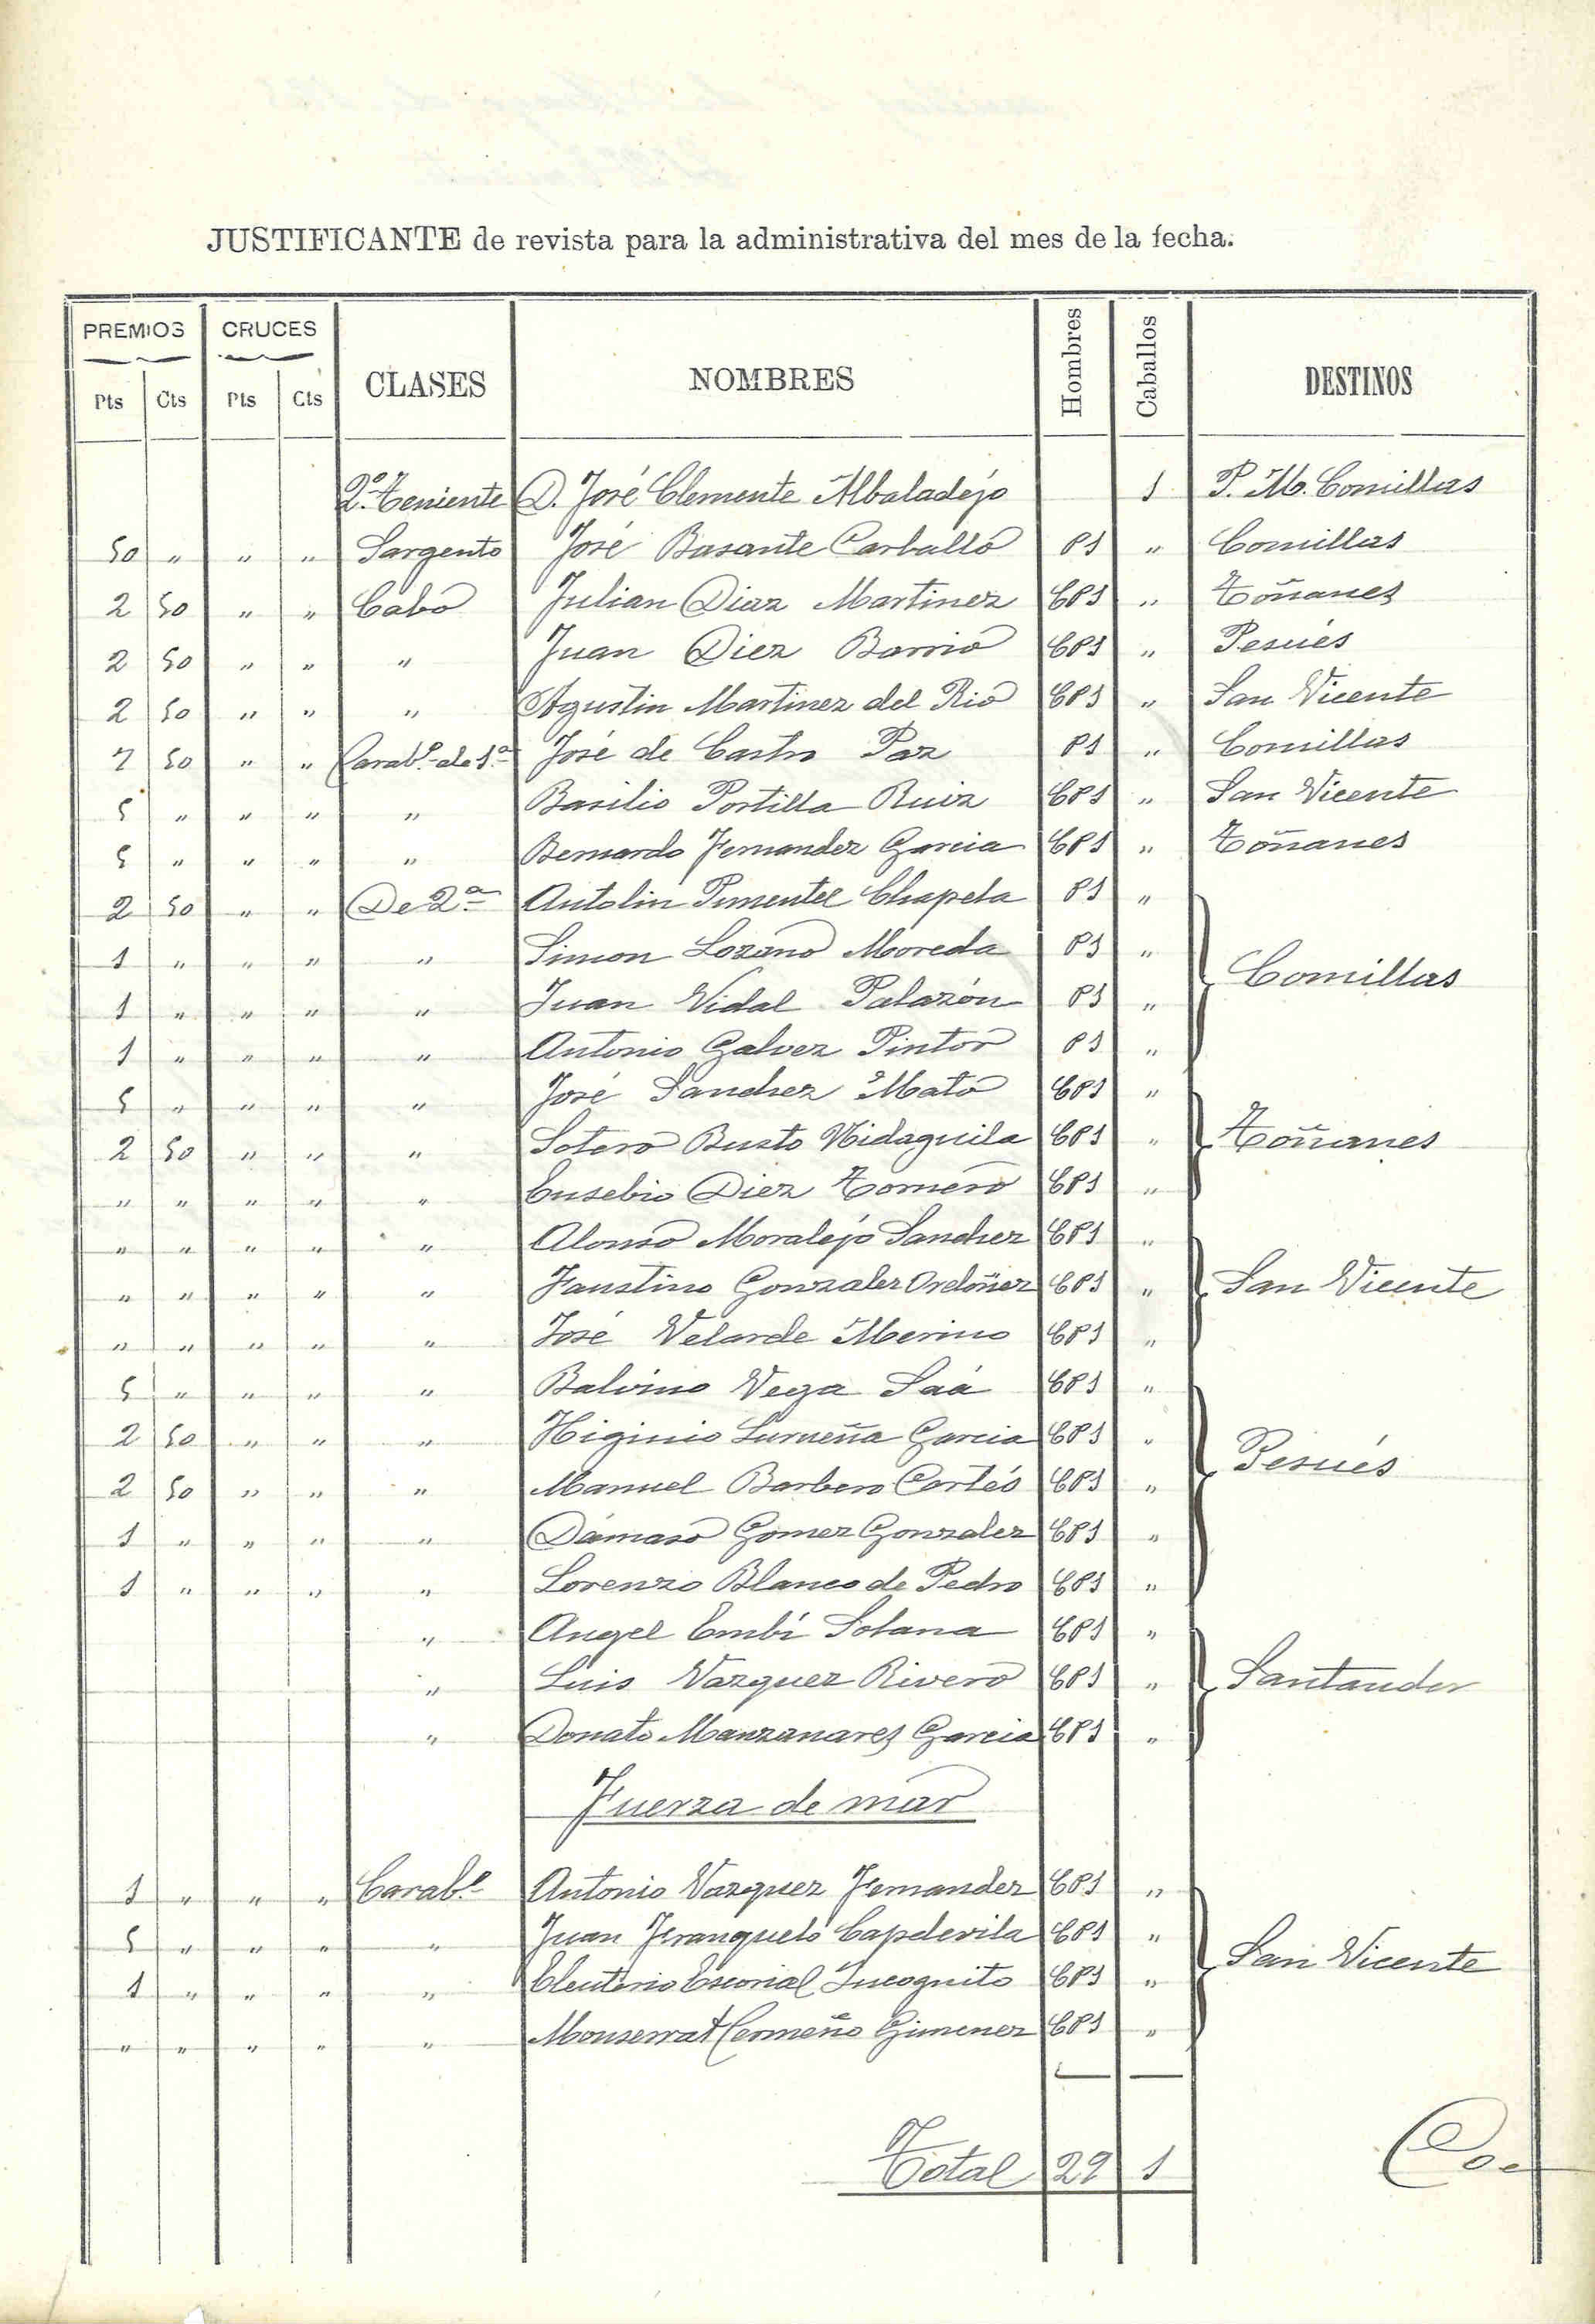 JUSTIFICANTE de revista para la administrativa del mes de la fecha.
PREMIOS CRUCES CLASES NOMBRES Hombres Caballos DESTINOS
Pts Cts Pts Cts
2º Teniente D. José Clemente Albaladéjo 1 P. M. Comillas
50 " " " Sargento José Basante Carballo P1 " Comillas
2 50 " " Cabo Julian Diaz Martinez CP1 " Toñanes
2 50 " " " Juan Diez Barrio CP1 " Pesués
2 50 " " " Agustin Martinez del Rio CP1 " San Vicente
7 50 " " Carabº de 1ª José de Castro Paz P1 " Comillas
5 " " " " Basilio Portilla Ruiz CP1 " San Vicente
5 " " " " Bernardo Fernandez Garcia CP1 " Toñanes
2 50 " " De 2ª Antolin Pimentel Chapela P1 "
1 " " " " Simon Lozano Moreda P1 "
Comillas
1 " " " " Juan Vidal Palazón P1 "
1 " " " " Antonio Galvez Pintor P1 "
5 " " " " José Sanchez Mato CP1 "
2 50 " " " Sotero Busto Vidaguila CP1 " Toñanes
" " " " " Eusebio Diez Tornero CP1 "
" " " " " Alonso Moraléjo Sanchez CP1 "
" " " " " Faustino Gonzalez Ordoñez CP1 " San Vicente
" " " " " José Velarde Merino CP1 "
5 " " " " Balvino Vega Saá CP1 "
2 50 " " " Higinio Lurueña Garcia CP1 "
Pesués
2 50 " " " Manuel Barbero Cortés CP1 "
1 " " " " Dámaso Gomez Gonzalez CP1 "
1 " " " " Lorenzo Blanco de Pedro CP1 "
" Angel Embí Solana CP1 "
" Luis Vazquez Rivero CP1 " Santander
" Donato Manzanares Garcia CP1 "
Fuerza de mar
1 " " " Carabº Antonio Vazquez Fernandez CP1 "
5 " " " " Juan Franqueló Capdevila CP1 "
San Vicente
1 " " " " Eleuterio Escorial Incognito CP1 "
" " " " " Monserrat Cermeño Gimenez CP1 "
Total 29 1